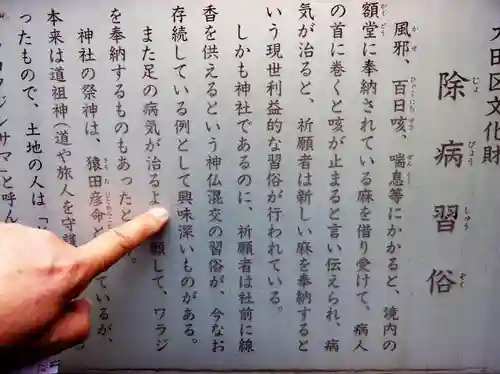 大田区文化財
除病習俗
じょ びょう しゅう ぞく
風邪、百日咳、喘息等にかかると、境内の
額堂に奉納されている麻を借り受けて、病人
の首に巻くと咳が止まると言い伝えられ、病
気が治ると、祈願者は新しい麻を奉納すると
いう現世利益的な習俗が行われている。
しかも神社であるのに、祈願者は社前に線
香を供えるという神仏混交の習俗が、今なお
存続している例として興味深いものがある。
また足の病気が治るよ 願して、ワラジ
を奉納するものもあったと 。
神社の祭神は、猿田彦命と ているが、
本来は道祖神(道や旅人を守護
ったもので、土地の人は「
サマ」と呼ん